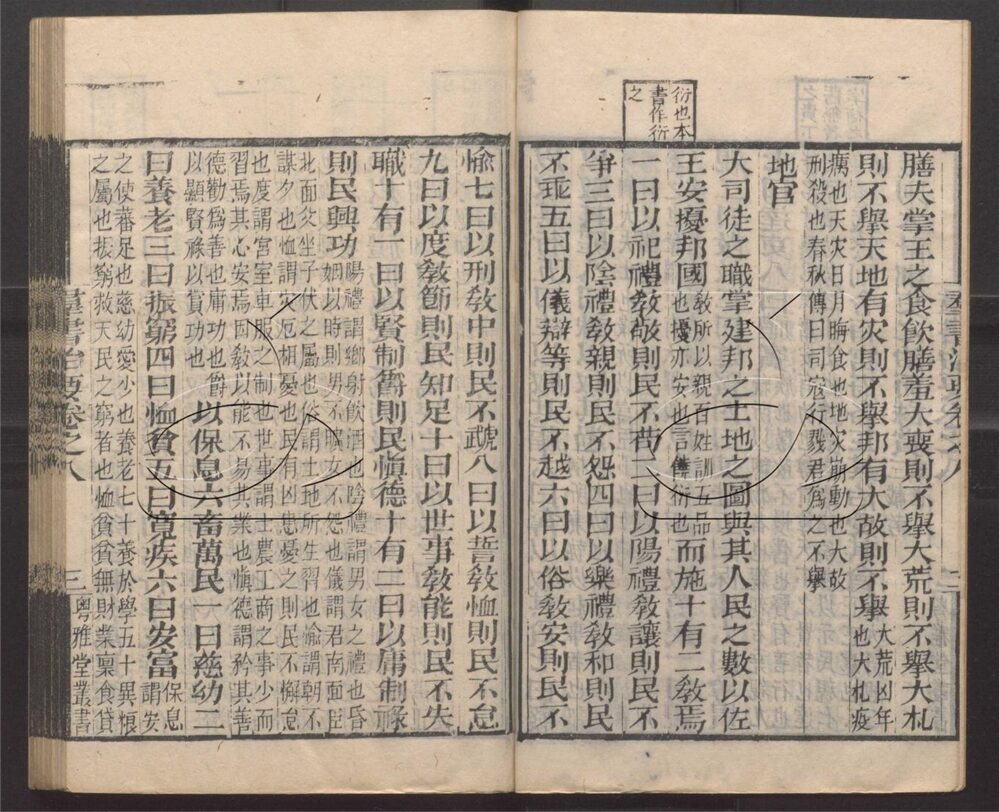 衍也本
書作衍
之
膳夫掌王之食飲膳羞大喪則不舉大荒則不舉大札
則不舉天地有灾則不舉邦有大故則不舉大荒凶年也大札疫
癘也天灾日月晦食也地灾崩動也大故
刑殺也春秋傳曰司寇行戮君爲之不舉
地官
大司徒之職掌建邦之土地之圖與其人民之數以佐
王安擾邦國教所以親百姓訓五品也擾亦安也言饒衍也而施十有二教焉
一曰以祀禮教敬則民不苟二曰以陽禮教讓則民不
爭三曰以陰禮教親則民不怨四曰以樂禮教和則民
不乖五曰以儀辯等則民不越六曰以俗教安則民不
愉七曰以刑教中則民不虣八曰以誓教恤則民不怠
九曰以度教節則民知足十曰以世事教能則民不失
職十有一曰以賢制爵則民愼德十有二曰以庸制祿
則民興功陽禮謂鄉射飲酒也陰禮謂男女之禮也昏姻以時則男不曠女不怨也儀謂君南面臣
北面父坐子伏之屬也俗謂土地所生習也愉謂朝不
謀夕也恤謂灾厄相憂也民有凶患憂之則民不懈怠
也度謂宮室車服之制也世事謂士農工商之事少而
習焉其心安焉因教以能不易其業也愼德謂矜其善
德勸爲善也庸功也爵
以顯賢祿以賞功也以保息六畜萬民一曰慈幼二
曰養老三曰振窮四曰恤貧五曰寬疾六曰安富保息謂安
之使蕃足也慈幼愛少也養老七十養於學五十異粻
之屬也振窮救天民之窮者也恤貧貧無財業稟食貸
羣書治要卷之八
三
粤雅堂叢書